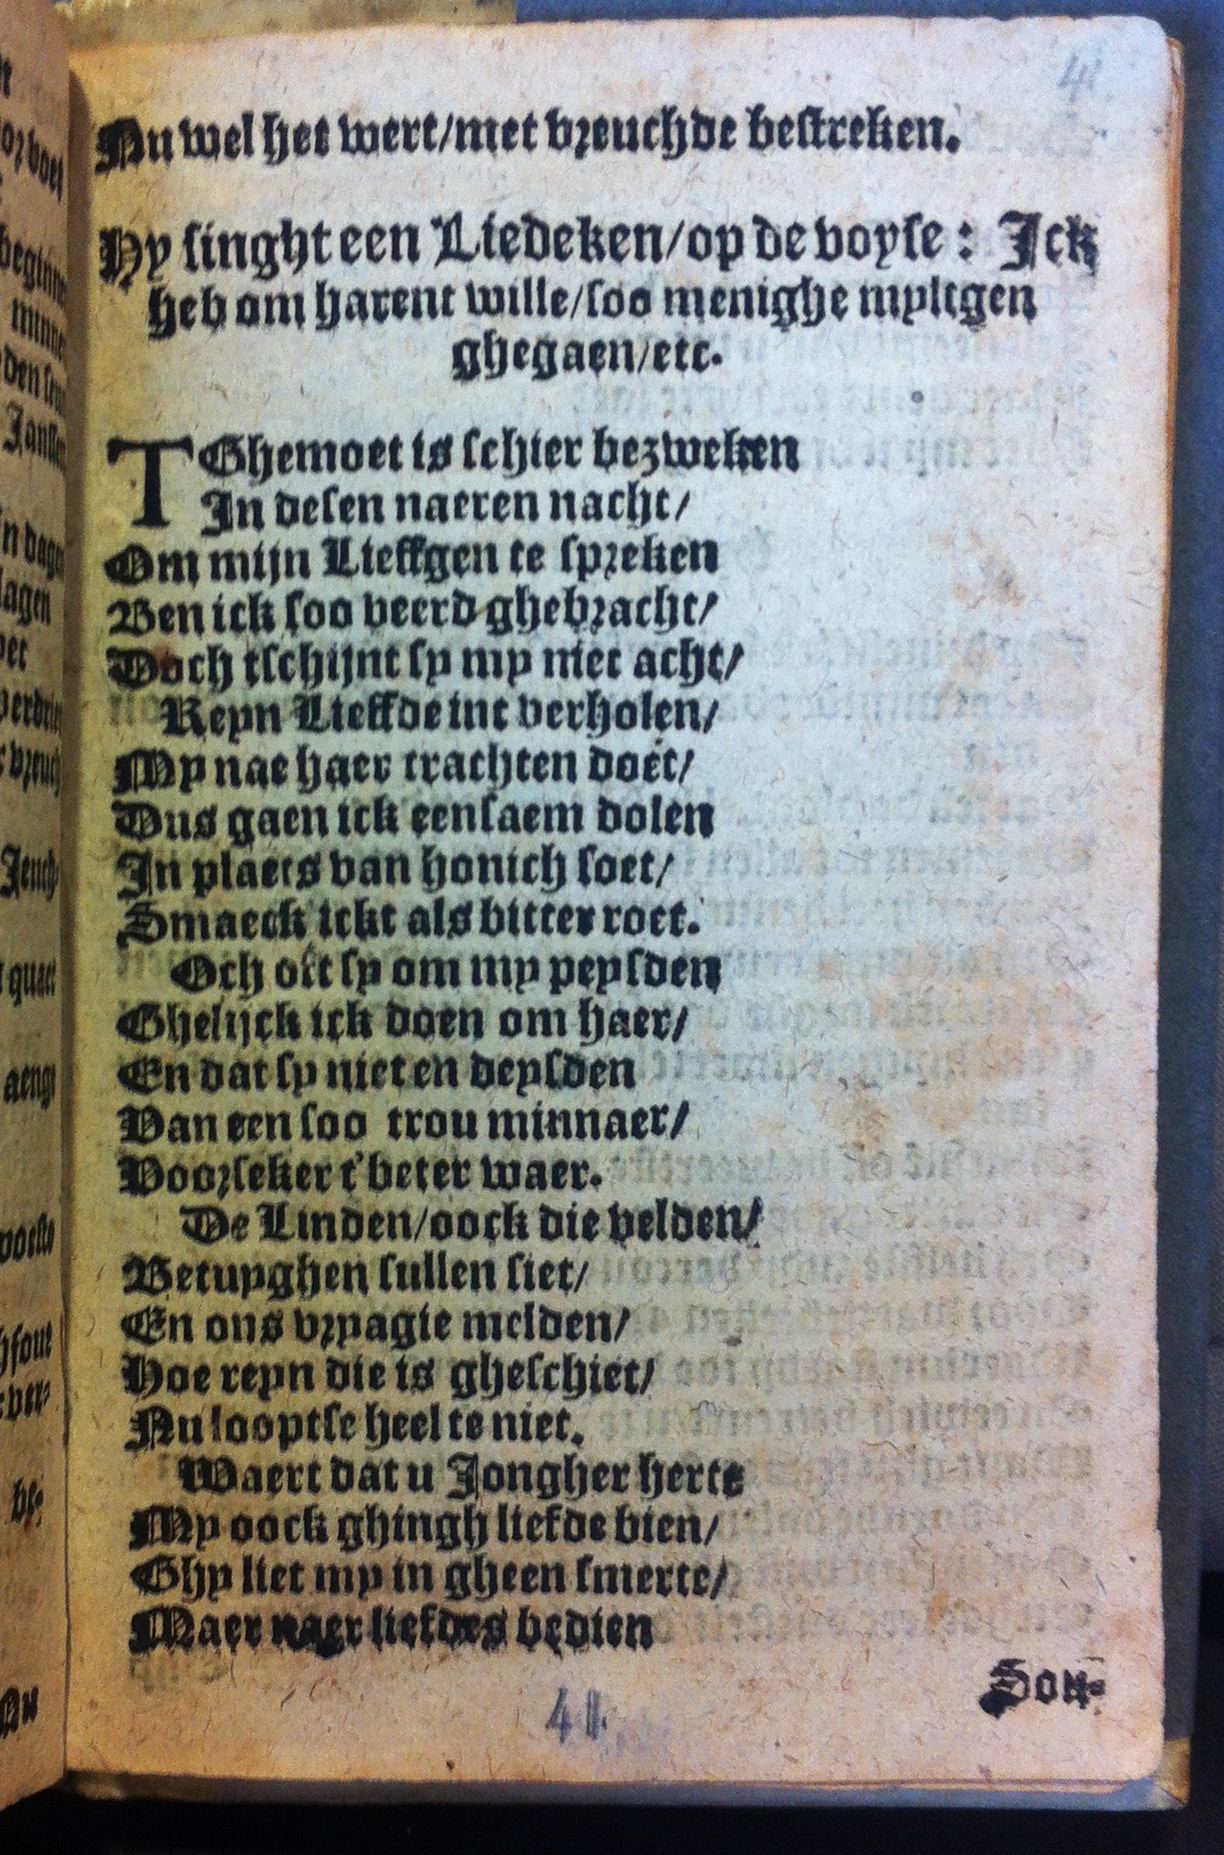 41
Nu wel het wert/met vreuchde bestreken.
Hy singht een Liedeken/op de voyse: Ick
heb om harent wille/soo menighe myltgen
ghegaen/etc.
TGhemoet is schier bezweken
In desen naeren nacht/
Om mijn Lieffgen te spreken
Ben ick soo veerd ghebracht/
Doch tschijnt sy my niet acht/
Reyn Lieffde int verholen/
My nae haer trachten doet/
Dus gaen ick eensaem dolen
In plaets van honich soet/
Smaeck ickt als bitter roet.
Och oft sy om my peysden
Ghelijck ick doen om haer/
En dat sy niet en deysden
Van een soo trou minnaer/
Voorseker t'beter waer.
De Linden/oock die velden/
Betuyghen sullen siet/
En ons vryagie melden/
Hoe reyn die is gheschiet/
Nu looptse heel te niet.
Waert dat u Jongher herte
My oock ghingh liefde bien/
Ghy liet my in gheen smerte/
Maer naer liefdes bedien
Sou-
41